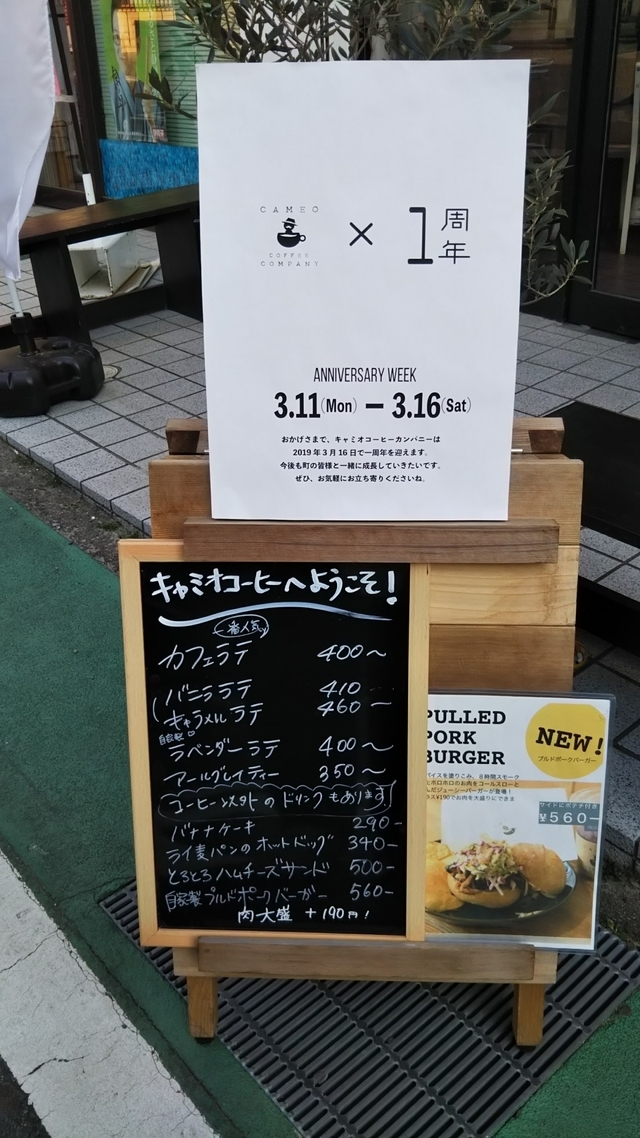 CAMEO
COFFEE
COMPANY
×
1周年
ANNIVERSARY WEEK
3.11(Mon) ー 3.16(Sat)
おかげさまで、キャミオコーヒーカンパニーは
2019年3月16日で一周年を迎えます。
今後も町の皆様と一緒に成長していきたいです。
ぜひ、お気軽にお立ち寄りくださいね。
キャミオコーヒーへようこそ!
一番人気
カフェラテ 400〜
バニララテ 410
キャラメルラテ 460〜
自家製
ラベンダーラテ 400〜
アールグレイティー 350〜
コーヒー以外のドリンクもあります
バナナケーキ 290-
ライ麦パンのホットドッグ 340-
とろとろハムチーズサンド 500-
自家製プルドポークバーガー 560-
肉大盛 +190円!
PULLED
PORK
BURGER
NEW!
プルドポークバーガー
パイスを塗りこみ、8時間スモーク
たホロホロのお肉をコールスローと
んだジューシーバーガーが登場!
ラス¥190でお肉を大盛りにできま
サイドにポテト付き
¥560-